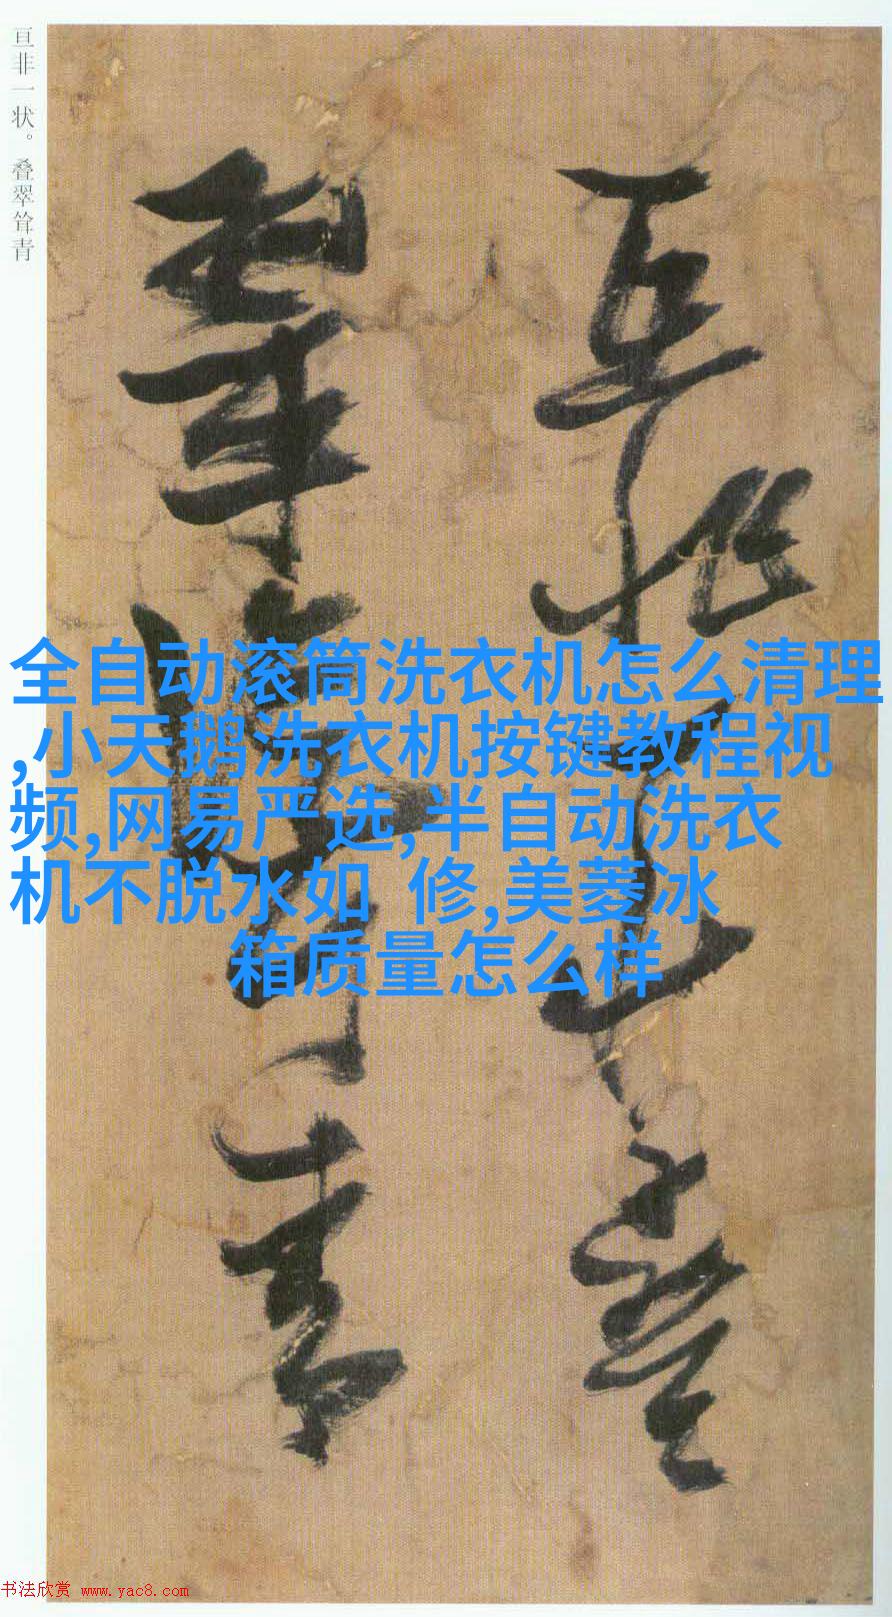 亘非一状。叠翠耸青
全自动滚筒洗衣机怎么清理
,小天鹅洗衣机按键教程视
频,网易严选,半自动洗衣
机不脱水如 修,美菱冰
箱质量怎么样
书法欣赏 www.yac8.com